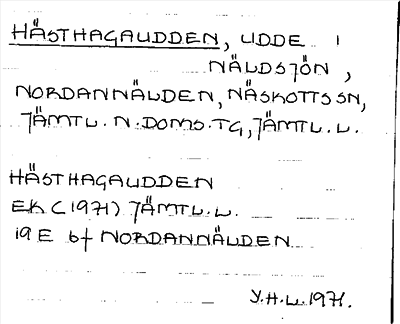 HÄSTHAGAUDDEN, UDDE I
NÄLDSJÖN,
NORDANNÄLDEN, NÄSKOTTS SN,
JÄMTL. N. DOMS. TG, JÄMTL. L.
HÄSTHAGAUDDEN
EK (1971) JÄMTL. L.
19 E bf NORDANNÄLDEN
Y.H.L. 1971.